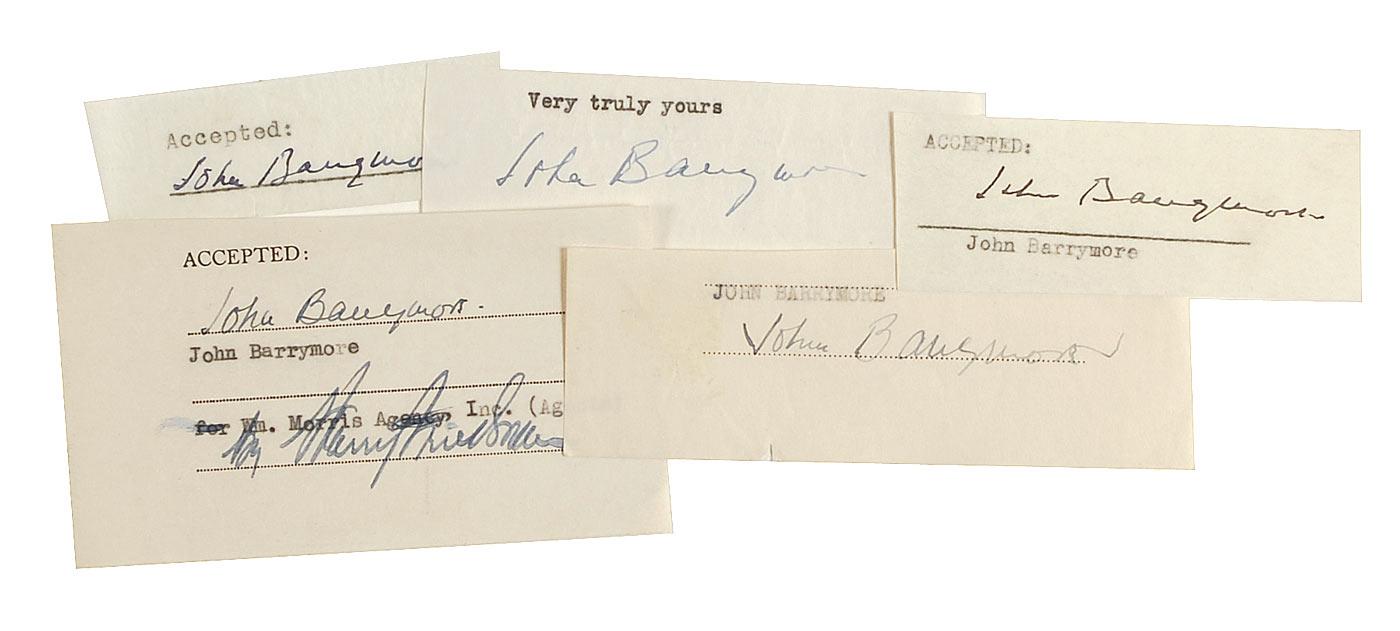 Accepted:
John Barrymo
Very truly yours
John Barrymore
ACCEPTED:
John Barrymore
John Barrymore
ACCEPTED:
John Barrymore.
John Barrymore
for Wm. Morris Agency, Inc. (Ag
by Harry
JOHN BARRYMORE
John Barrymore